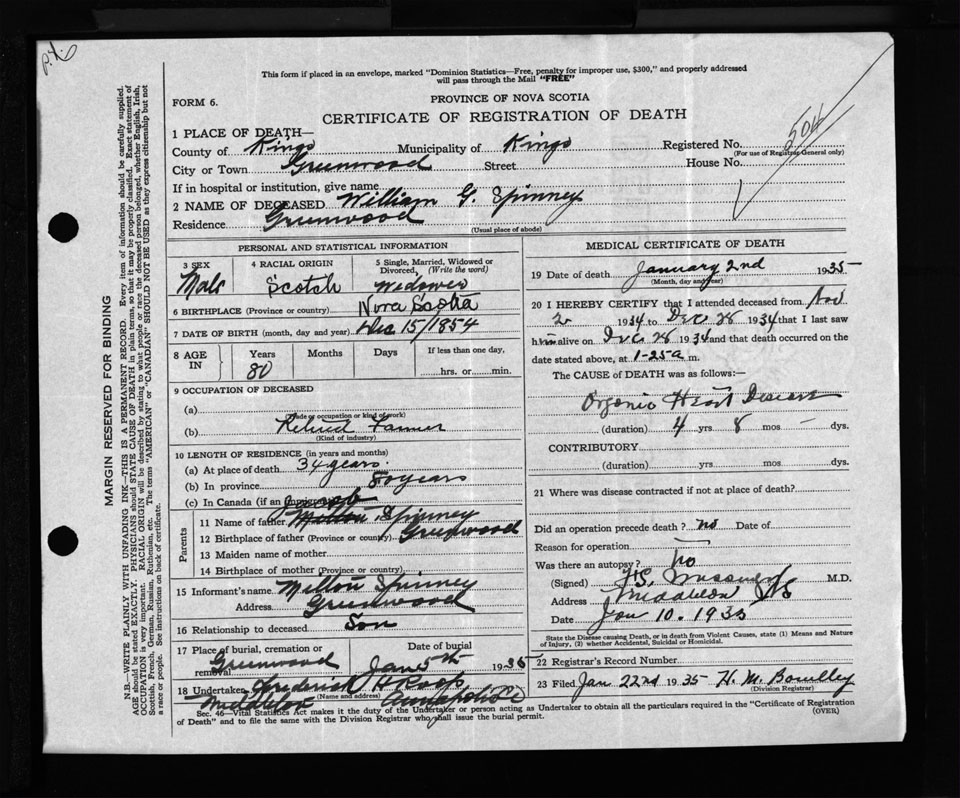 P.X.
This form if placed in an envelope, marked "Dominion Statistics—Free, penalty for improper use, $300," and properly addressed
will pass through the Mail "FREE"
FORM 6.
PROVINCE OF NOVA SCOTIA
CERTIFICATE OF REGISTRATION OF DEATH
504
1 PLACE OF DEATH—
County of Kings Municipality of Kings Registered No.
(For use of Registrar General only)
City or Town Greenwood Street House No.
If in hospital or institution, give name
2 NAME OF DECEASED William G. Spinney
Residence Greenwood
(Usual place of abode)
PERSONAL AND STATISTICAL INFORMATION
3 SEX Male
4 RACIAL ORIGIN Scotch
5 Single, Married, Widowed or Divorced, (Write the word) Widower
6 BIRTHPLACE (Province or country) Nova Scotia
7 DATE OF BIRTH (month, day and year) Dec 15/1854
8 AGE IN Years 80 Months Days If less than one day, hrs. or min.
9 OCCUPATION OF DECEASED
(a)
(Trade or occupation or kind of work)
(b) Retired Farmer
(Kind of industry)
10 LENGTH OF RESIDENCE (in years and months)
(a) At place of death 34 years
(b) In province 80 years
(c) In Canada (if an immigrant)
Parents
Jacob
11 Name of father Milton Spinney
12 Birthplace of father (Province or country) Greenwood
13 Maiden name of mother
14 Birthplace of mother (Province or country)
15 Informant's name Milton Spinney
Address Greenwood
16 Relationship to deceased Son
17 Place of burial, cremation or removal Greenwood Date of burial Jan 5th 1935
18 Undertaker Frederick H Roop
(Name and address)
Middleton Annapolis Co
Sec. 46—Vital Statistics Act makes it the duty of the Undertaker or person acting as Undertaker to obtain all the particulars required in the "Certificate of Registration
of Death" and to file the same with the Division Registrar who shall issue the burial permit.
(OVER)
MEDICAL CERTIFICATE OF DEATH
19 Date of death January 2nd 1935
(Month, day and year)
20 I HEREBY CERTIFY that I attended deceased from Nov
2 1934 to Dec 28 1934 that I last saw
him alive on Dec 28 1934 and that death occurred on the
date stated above, at 1-25 a m.
The CAUSE of DEATH was as follows:
Organic Heart Disease
(duration) 4 yrs 8 mos — dys.
CONTRIBUTORY
(duration) yrs. mos. dys.
21 Where was disease contracted if not at place of death?
Did an operation precede death? no Date of
Reason for operation —
Was there an autopsy? no
(Signed) M.D.
Address Middleton NS
Date Jan 10. 1935
State the Disease causing Death, or in death from Violent Causes, state (1) Means and Nature
of Injury, (2) whether Accidental, Suicidal or Homicidal.
22 Registrar's Record Number
23 Filed Jan 22nd 1935 H. M.
(Division Registrar)
MARGIN RESERVED FOR BINDING
N.B.—WRITE PLAINLY WITH UNFADING INK—THIS IS A PERMANENT RECORD. Every item of information should be carefully supplied.
AGE should be stated EXACTLY. PHYSICIANS should STATE CAUSE OF DEATH in plain terms, so that it may be properly classified. Exact statement of
OCCUPATION is very important. RACIAL ORIGIN will be described by stating to what people or race the deceased person belonged, whether English, Irish,
Scottish, French, German, Russian, Ruthenian, etc. The terms "AMERICAN" or "CANADIAN" SHOULD NOT BE USED as they express citizenship but not
a race or people. See instructions on back of certificate.